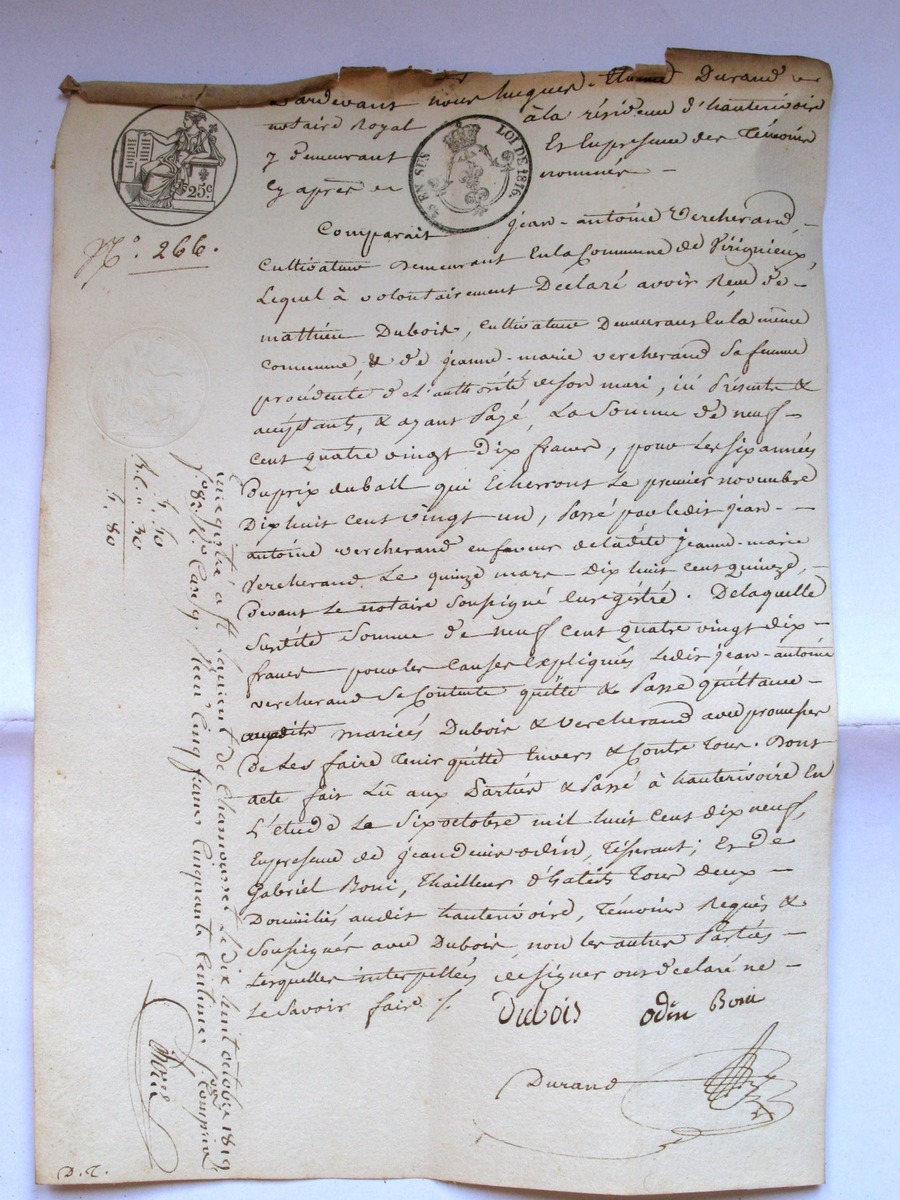 Pardevant nous Durand
notaire Royal à la résidence d'hauterivoire
y demeurant Et En présence des Témoins
cy après en nommés —
25 EN SUS
LOI DE 1816.
25c.
N.° 266.
Comparait jean-antoine Vercherand -
Cultivateur Demeurant En la Commune de Virignieux,
Lequel à volontairement Déclaré avoir Reçu de -
mathieu Dubois, cultivateur Demeurant En la même
Commune, & de jeanne-marie vercherand Sa femme
procédente de L'authorité de son mari, ici Présents &
acceptants, & ayant Payé, La Somme de neuf -
cent quatre vingt Dix francs, pour Les Six années
Du prix du bail qui Echerront Le premier novembre
Dix huit cent vingt un, Passé par Ledit jean -
antoine vercherand en faveur de ladite jeanne-marie
Vercherand Le quinze mars Dix huit cent quinze, -
devant Le notaire Soussigné Enregistré. De laquelle
Susdite Somme de neuf cent quatre vingt dix -
francs pour les Causes Expliqués Ledit jean-antoine
vercherand Se Contente quitte & Passe quittance -
mariés Dubois & Vercherand avec promesses
de Les faire Tenir quitte Envers & Contre Tous. Dont
acte fait Lû aux Parties & Passé à hauterivoire En
L'étude Le Six octobre mil huit cent dix neuf,
En présence de jean denis odin, Tisserant; Et de
Gabriel Boni, Thailleur d'habits Tous deux -
Domiciliés audit hauterivoire, Témoins Requis &
Soussignés avec Dubois non les autres Parties -
Lesquelles interpellées de signer ont déclaré ne -
Le Savoir faire ./.
Dubois odin Boni
Durand
Enregistré à St Laurent de Chamousset Le dix huit octobre 1819
f° 82 R° Case 9. Reçu Cinq francs Cinquante Centimes Compris
5. 50
30
5. 80
D. T.